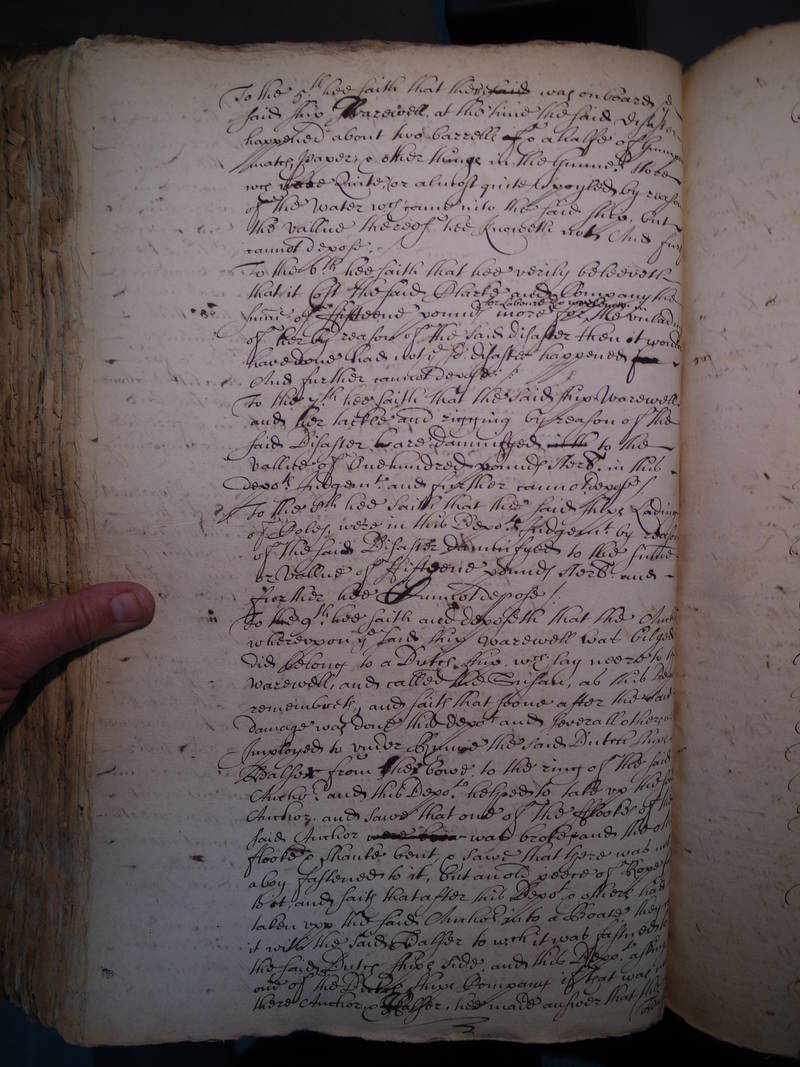 To the 5th hee saith that there said was onboard ye
said ship Warewell, at the time the said disaster
happened about two barrells & a halfe of Gunn
match, paper, & other things in the Gunner store
wch were quite, or almost quite spoyled by reason
of the Water wch came into the said ship, but
the vallue thereof hee knoweth not And fur
cannot depose.
To the 6th hee saith that hee verily beleeveth
that it Cost the said Clarke and Company the
summe of fifteene pounds more for the unladin
of her by reason of the said disaster then it would
have done had not ye sd disaster happened
And further cannot depose
To the 7th hee saith that the said ship Warewell
and her tackle and rigging by reason of the
said Disaster are damnifyed to the
vallue of One hundred pounds sterl. in this
depots Judgent. and further cannot depose
To the 8th hee saith that the said ships Lading
of were in this Depots Judgemt by reason
of the said Disaster Damnifyed to the summe
or vallue of fifteene pounds sterl. and
further hee Cannot depose
To the 9th hee saith and deposeth that the Anch
whereupon ye said ship Warewell was bilged
did belong to a Dutch ship wch lay neere to the
Warewell, and called the Susan, as this Dep
remembreth, and saith that soone after the said
damage was done this depot and severall others
Imployed to under the said Dutch ships
Halser from her bowe, to the ring of the said
Anchor and this Depot. helped to take up the said
Anchor, and sawe that one of the flookes of the
said Anchor was broke, and the oth
flooke & shanke bent, & sawe that there was not
a boy fastened to it, but an old peece of Rope
to it, and saith that after this Depot & others had
taken upp the said Anchor into a Boate, they
it with the said Halser to wch it was fastned to
the said Dutch ships side and this Depot. asking
one of the Dutch ships Company if that was
there Anchor & Halser, hee made answer that